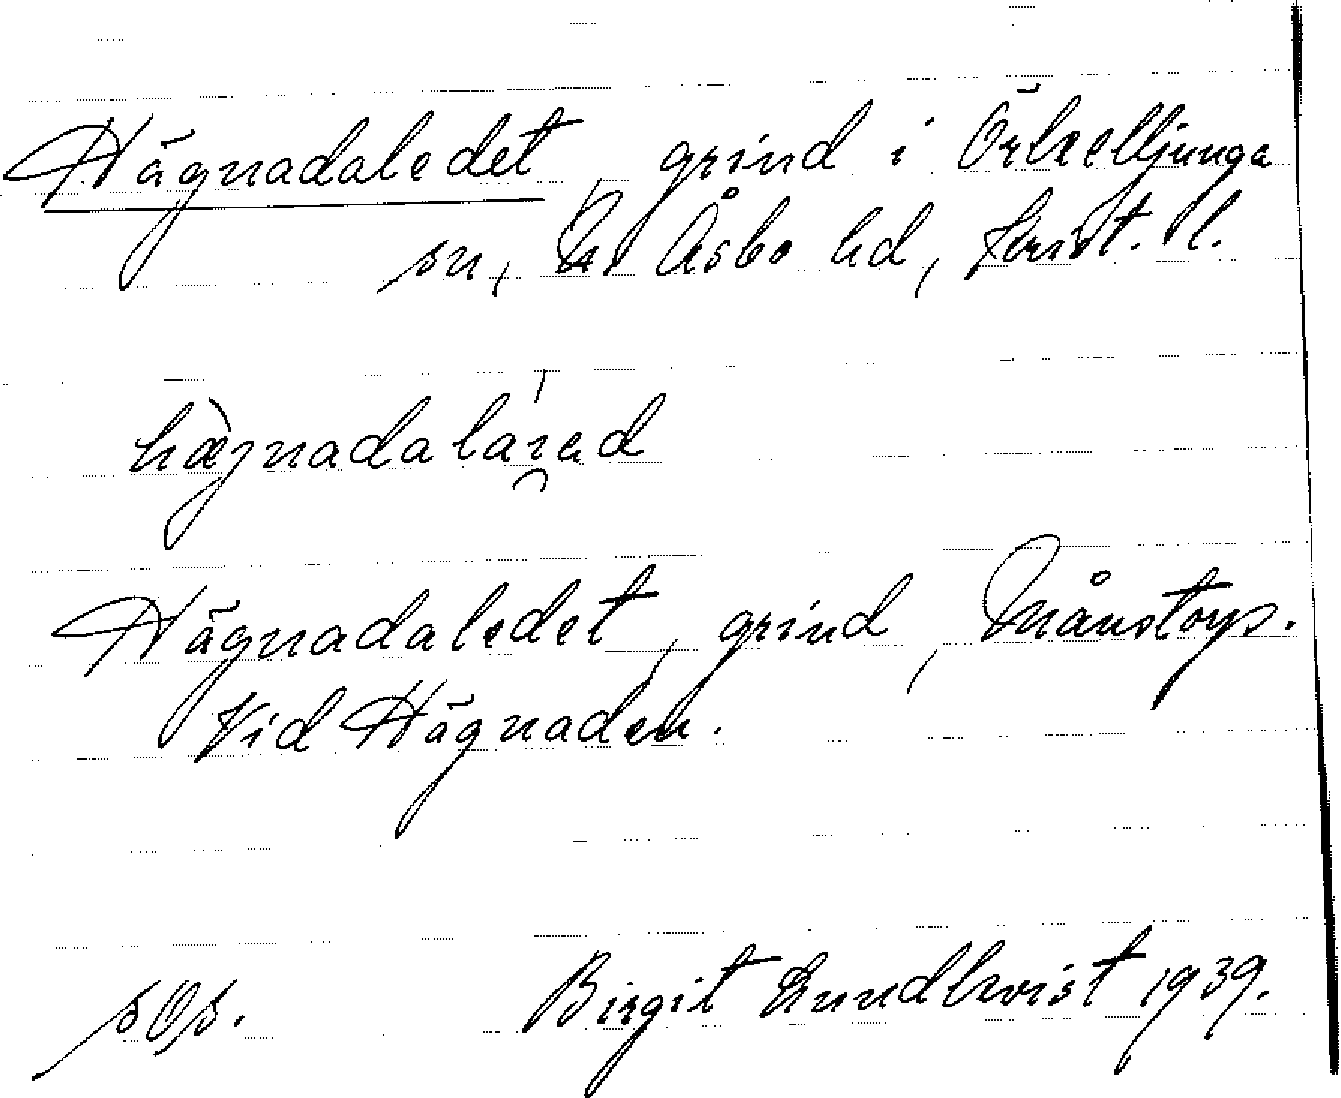 Hägnadaledet, grind i Örkelljunga
sn, N. Åsbo hd, Krist. l.
hægnadaláed
Hägnadaledet, grind, Månstorp.
Vid Hägnaden.
sOs. Birgit Lundkvist 1939.